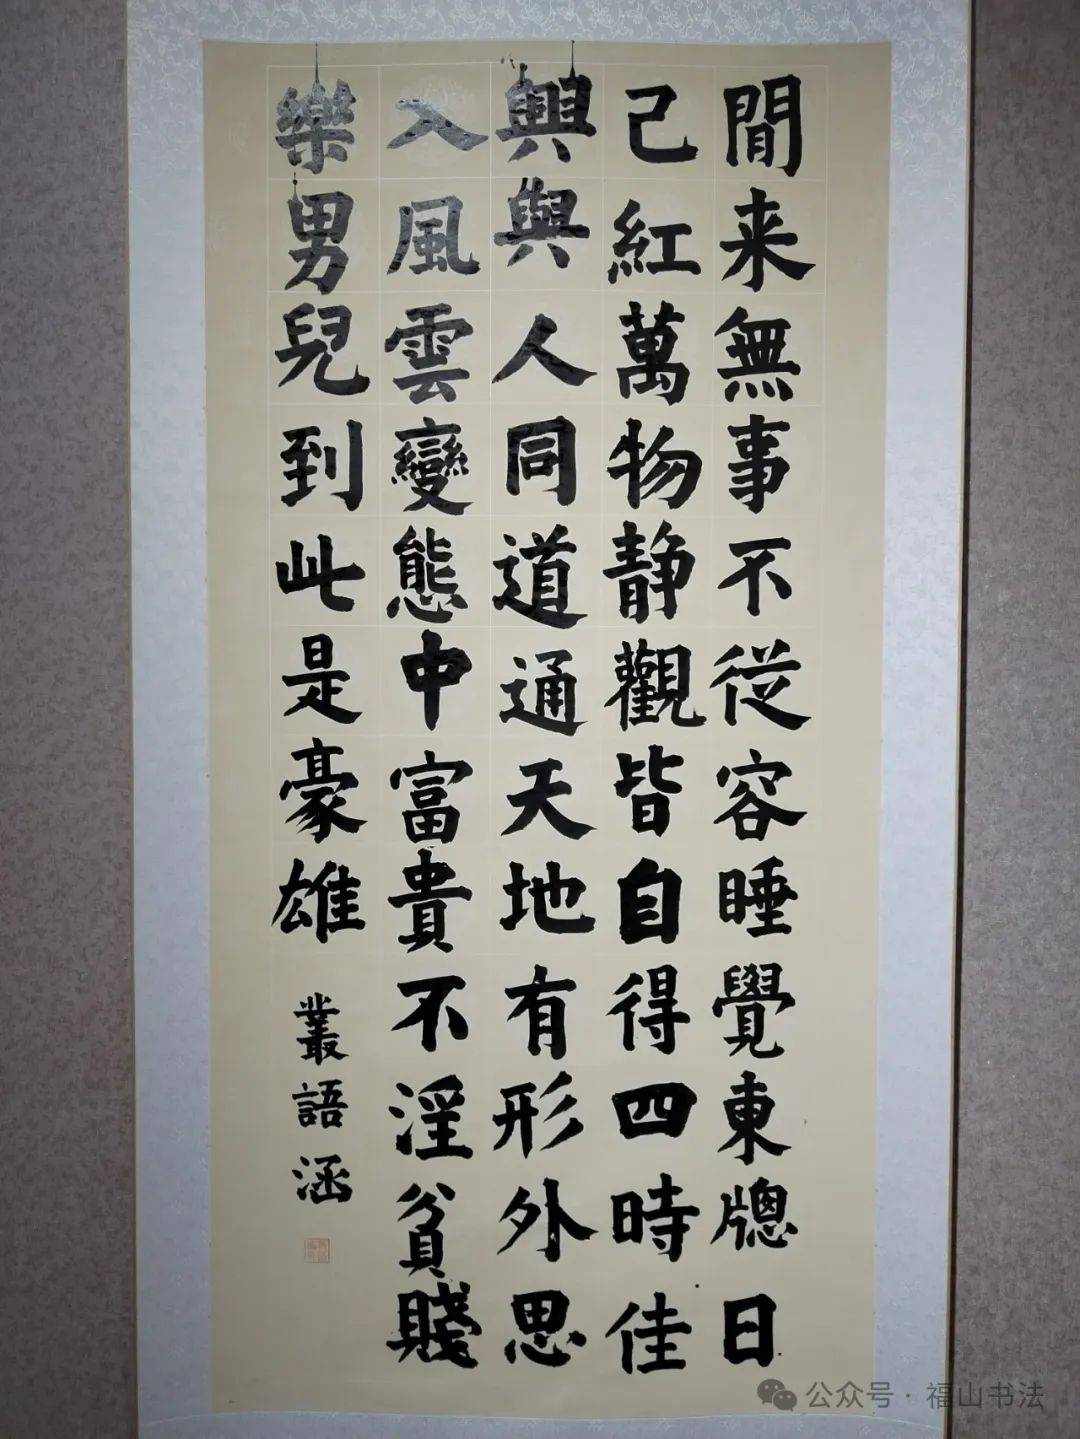 閒来無事不從容睡覺東牕日
己紅萬物靜觀皆自得四時佳
興與人同道通天地有形外思
入風雲變態中富貴不淫貧賤
樂男兒到此是豪雄
叢語涵
公众号·福山书法